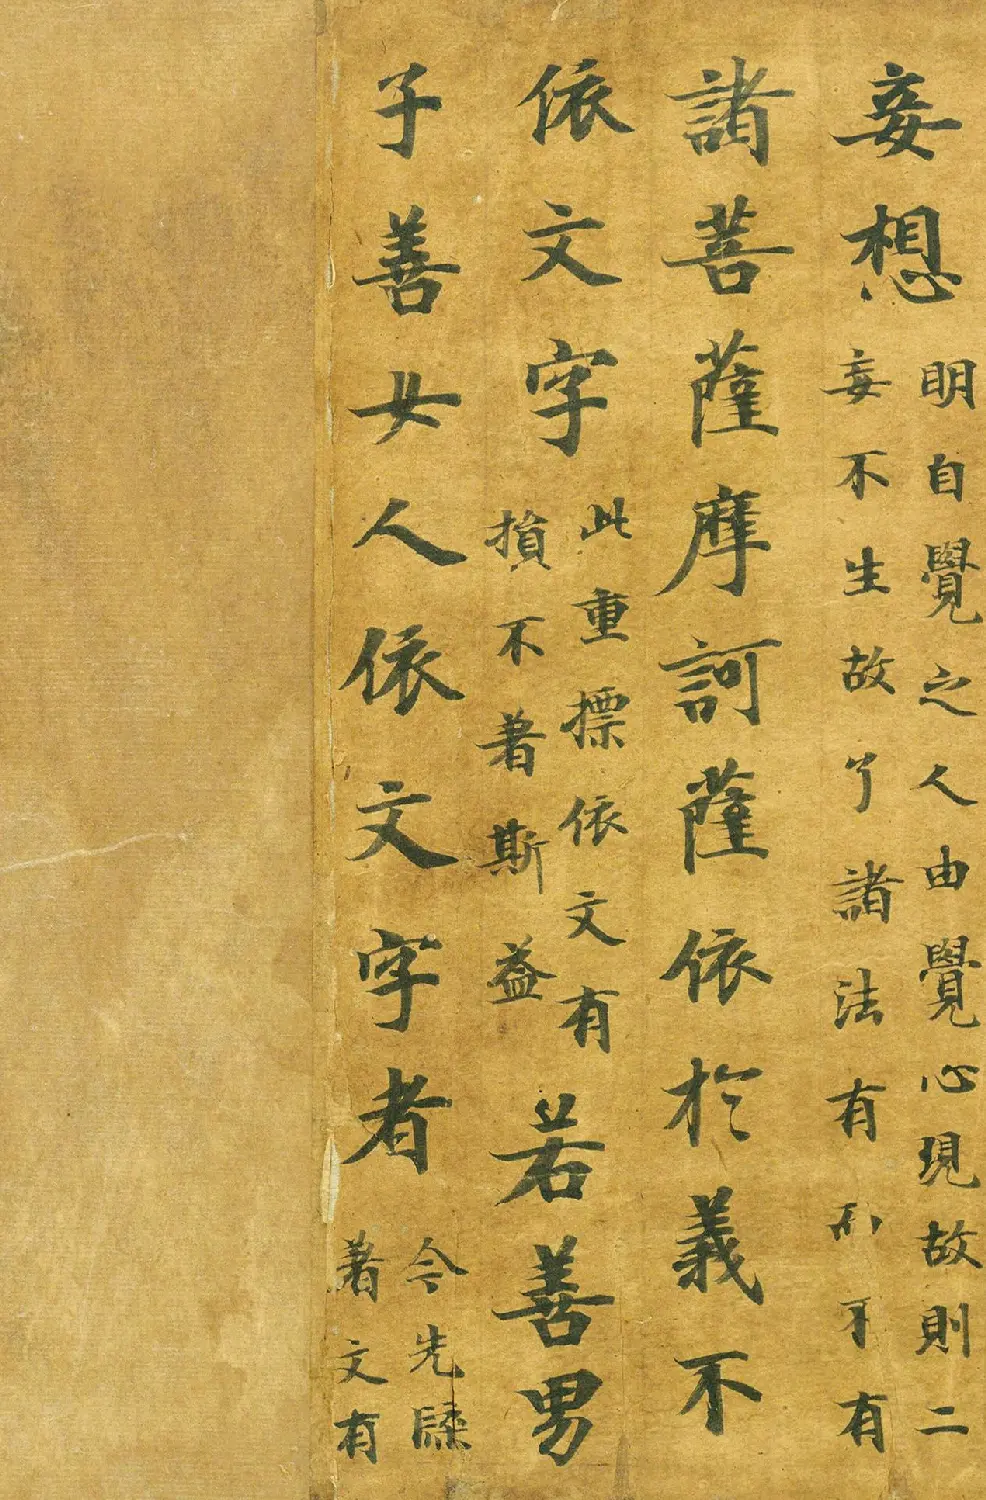 妄想
明自覺之人由覺心現故則二
妄不生故了諸法有而不有
諸菩薩摩訶薩依於義不
依文字
此重標依文有
損不著斯益
若善男
子善女人依文字者
今先牒
著文有